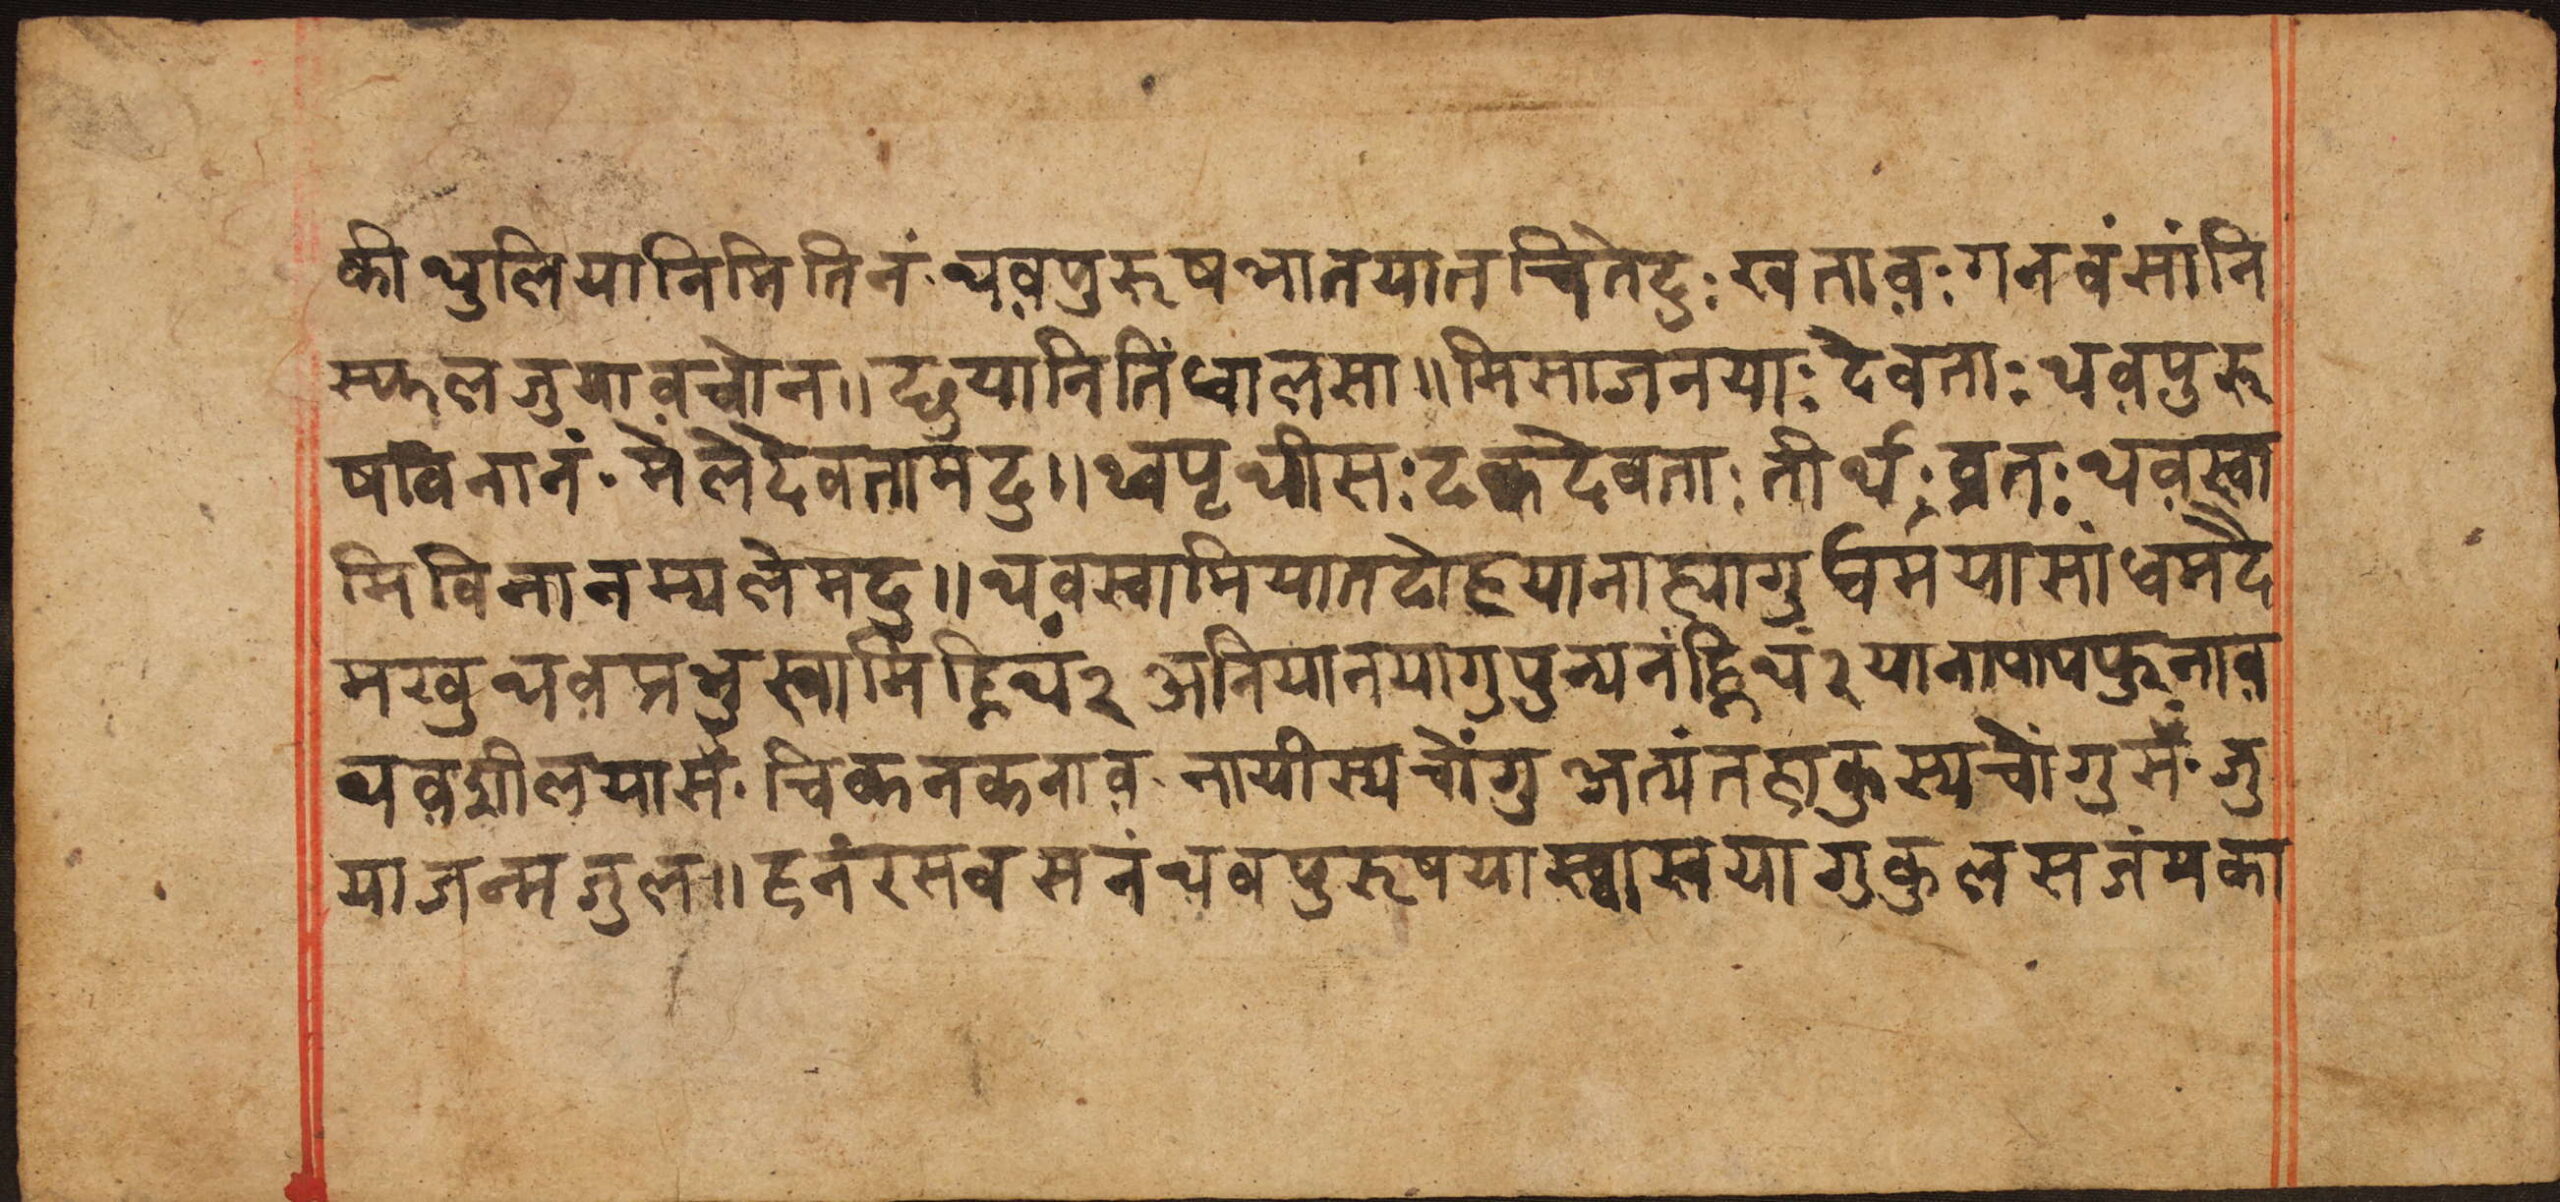 की थुलिया निमितिनं थव़पुरूषभातयात चितेदुःखताव़ः गनवंसांनि
स्फलजुयाव़चोन॥ छुयानितिंधालसा॥ मिसाजनयाः देवताः थव़पुरू
षविनानं मेलेदेवतामदु॥ थ्वपृथीसः दक्वदेवताः तीर्थः व्रतः थव़स्वा
मिविनानम्यलेमदु॥ थवस्वामियातदोहयानाह्यागुधर्मयासांधर्मदै
मखु थवप्रभुस्वामिह्निथं२ अनियानयागुपुन्यनंह्निथं२ यानापापफुनाव़
थव़शीलयासें चिकनकनाव़ नायीस्यचोंगु अत्यंतहाकुस्यचोंगुसँ जु
याजन्मजुल॥ हनंरसवसनंथवपुरूषयास्वास्वयागुकुलसजंमका